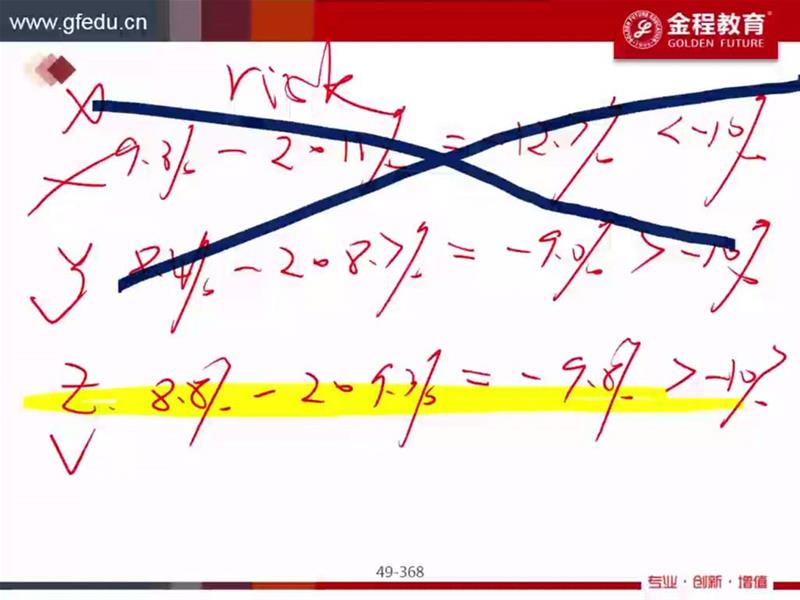 www.gfedu.cn
金程教育
GOLDEN FUTURE
risk
X
9.3% - 2 · 11% = -12.7% < -10%
y 8.4% - 2 · 8.7% = -9.0% > -10%
Z. 8.8% - 2 · 9.3% = -9.8% > -10%
49-368
专业·创新·增值